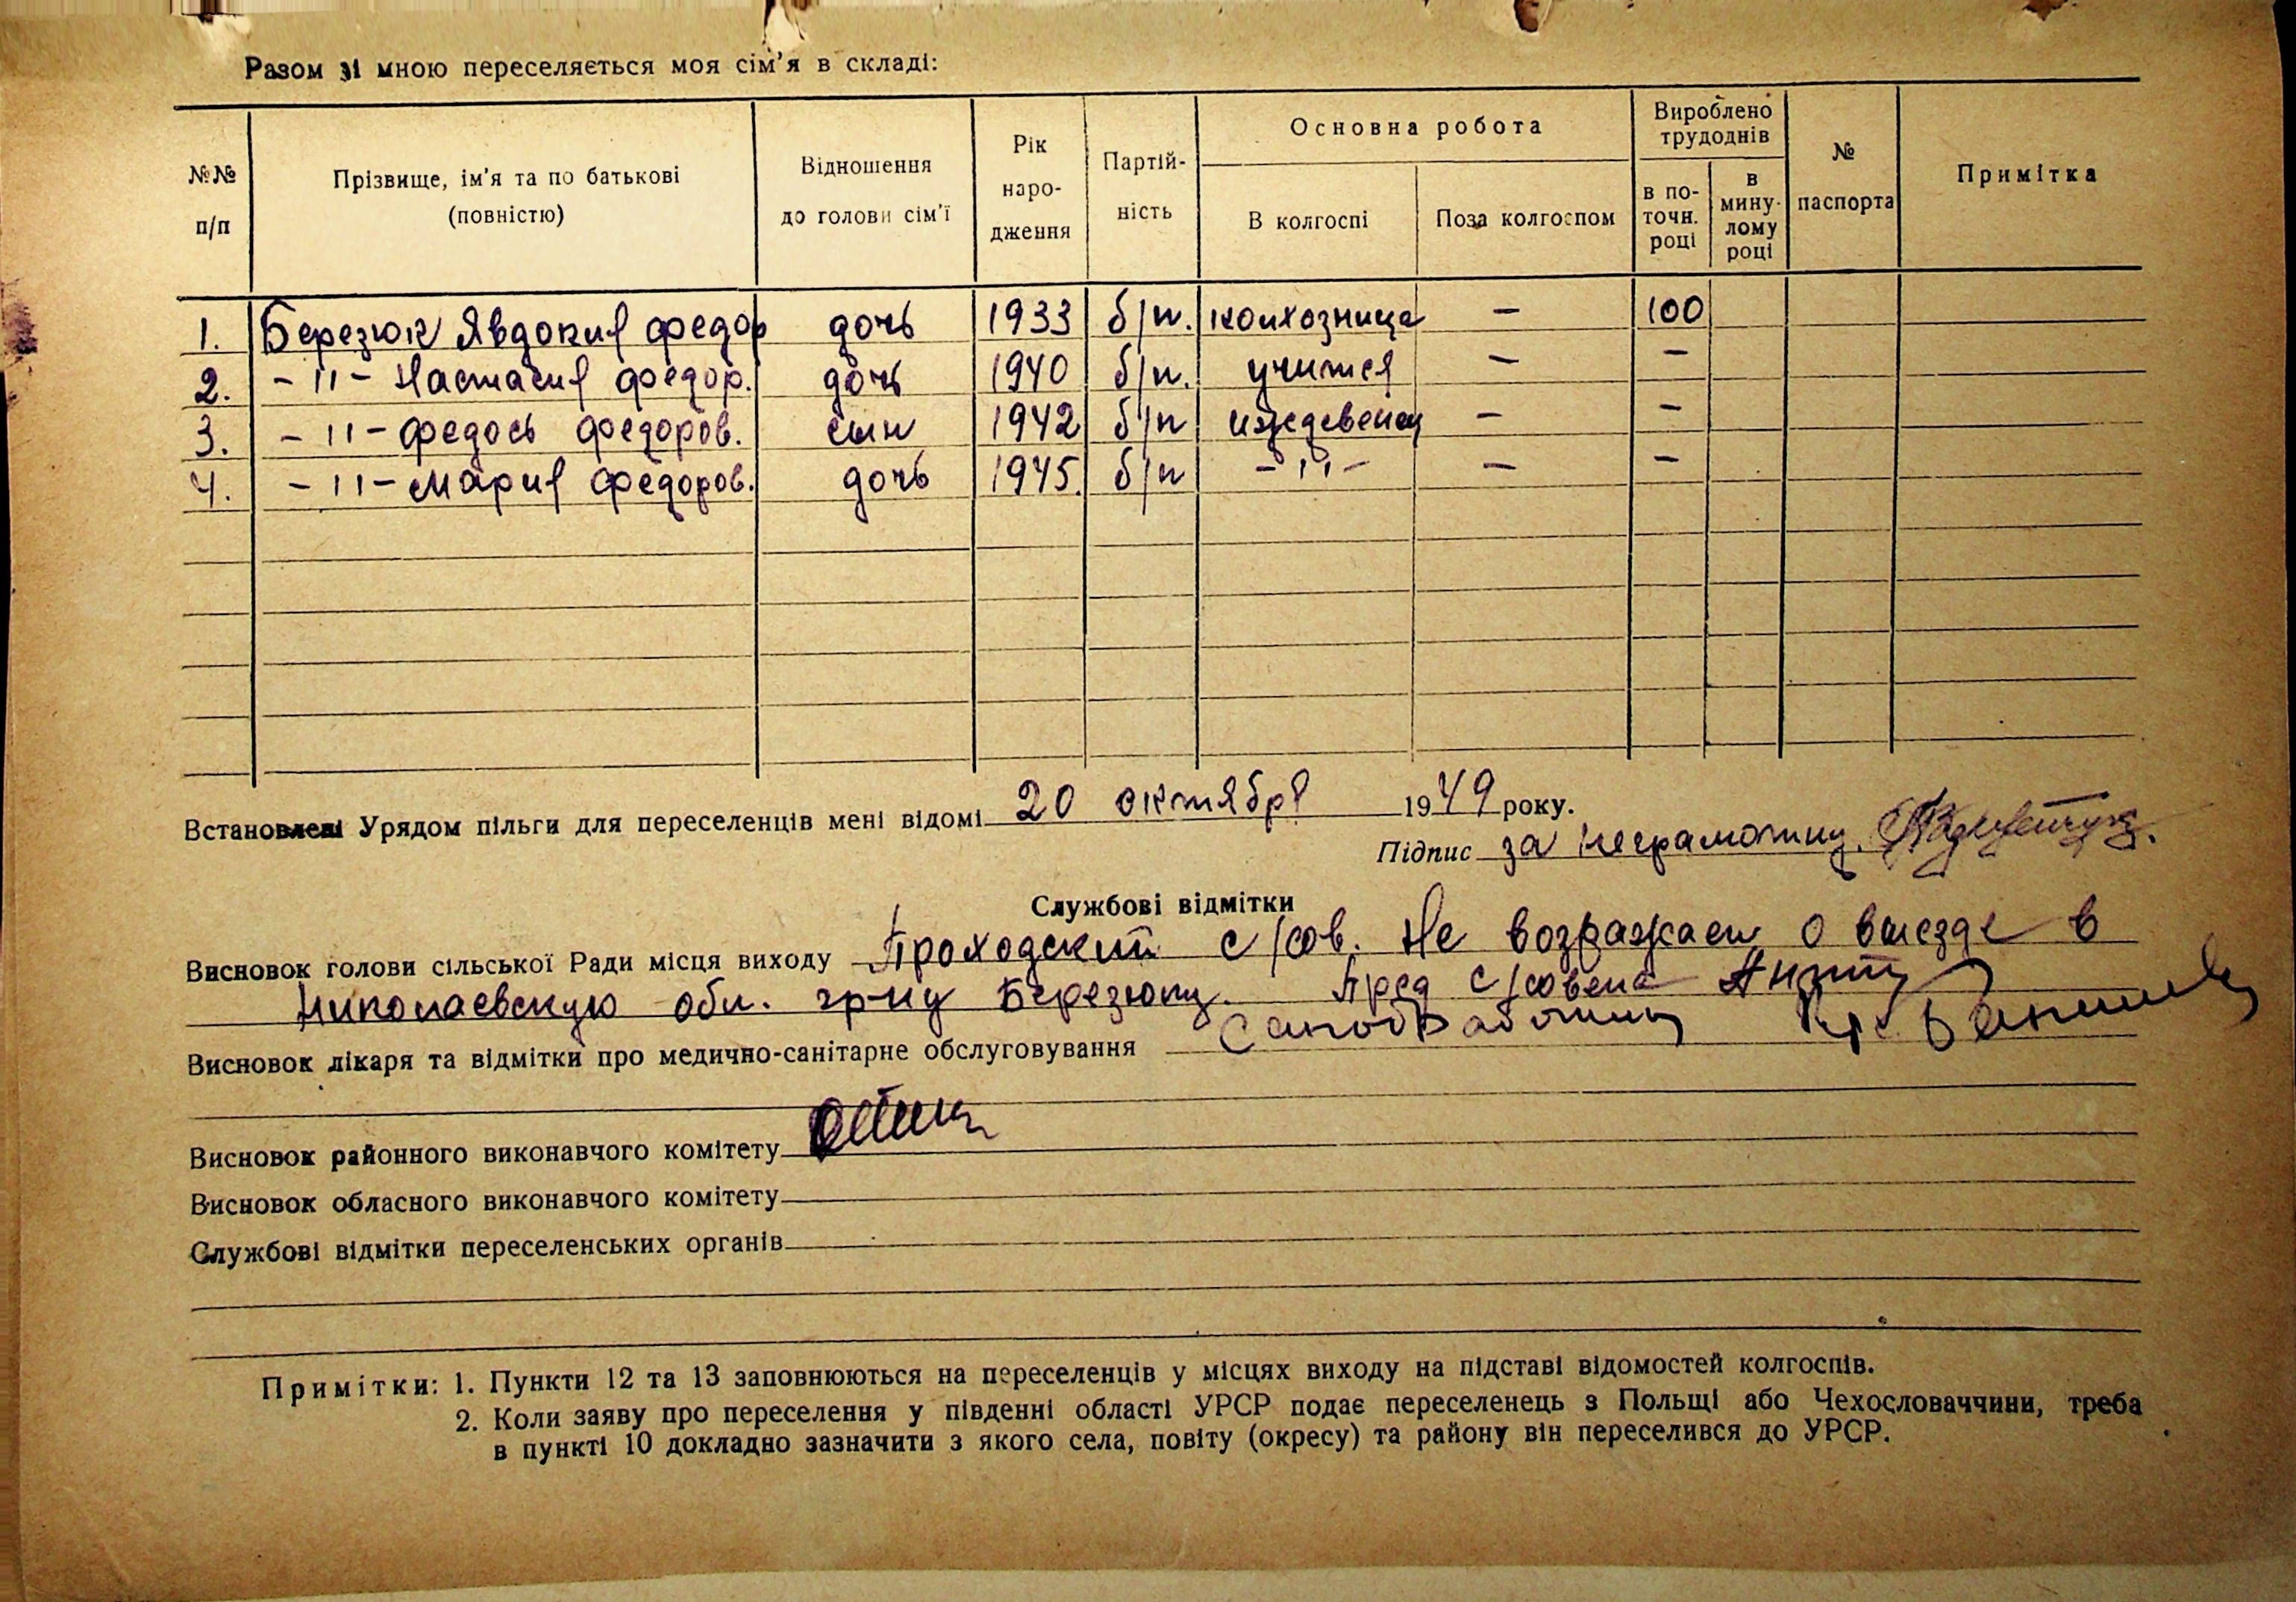 Разом зі мною переселяється моя сім'я в складі:
№№ п/п
Прізвище, ім'я та по батькові (повністю)
Відношення до голови сім'ї
Рік наро-дження
Партій-ність
Основна робота
В колгоспі
Поза колгоспом
Вироблено трудоднів
в по-точн. році
в мину-лому році
№ паспорта
Примітка
1. Березюк Явдокия федор дочь 1933 б/п. колхозница — 100
2. -"- Настасия федор. дочь 1940 б/п. учится — —
3. -"- Федось федоров. сын 1942 б/п иждевенец — —
4. -"- Мария федоров. дочь 1945. б/п -"- — —
Встановлені Урядом пільги для переселенців мені відомі 20 октября 1949 року.
Підпис за неграмотну.
Службові відмітки
Висновок голови сільської Ради місця виходу Проходский с/сов. Не возражаем о выезде в
Николаевскую обл. гр-ну Березюку. Пред с/совета
Висновок лікаря та відмітки про медично-санітарне обслуговування
Висновок районного виконавчого комітету
Висновок обласного виконавчого комітету
Службові відмітки переселенських органів
Примітки: 1. Пункти 12 та 13 заповнюються на переселенців у місцях виходу на підставі відомостей колгоспів.
2. Коли заяву про переселення у південні області УРСР подає переселенець з Польщі або Чехословаччини, треба
в пункті 10 докладно зазначити з якого села, повіту (окресу) та району він переселився до УРСР.